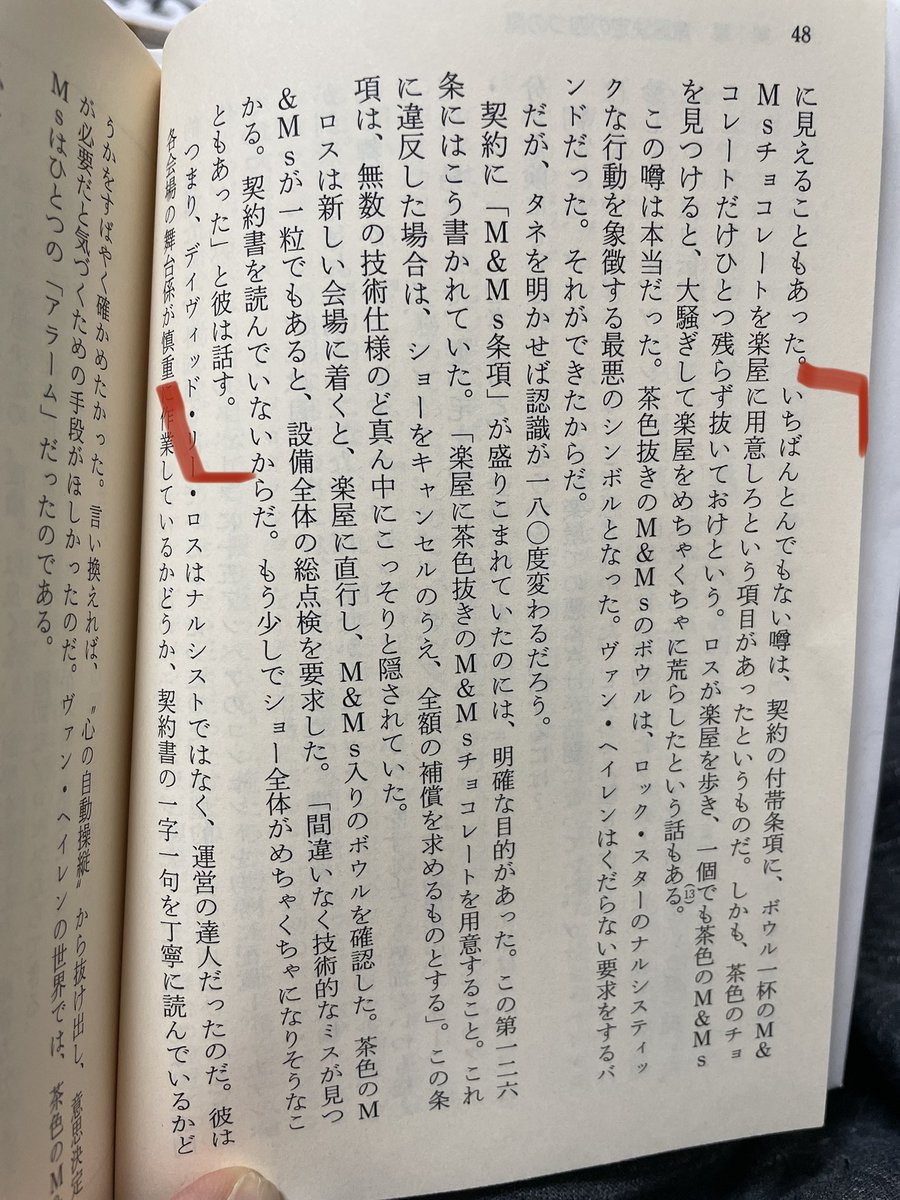 48
に見えることもあった。いちばんとんでもない噂は、契約の付帯条項に、ボウル一杯のM&
Msチョコレートを楽屋に用意しろという項目があったというものだ。しかも、茶色のチョ
コレートだけひとつ残らず抜いておけという。ロスが楽屋を歩き、一個でも茶色のM&Ms
を見つけると、大騒ぎして楽屋をめちゃくちゃに荒らしたという話もある。(13)
この噂は本当だった。茶色抜きのM&Msのボウルは、ロック・スターのナルシスティッ
クな行動を象徴する最悪のシンボルとなった。ヴァン・ヘイレンはくだらない要求をするバ
ンドだった。それができたからだ。
だが、タネを明かせば認識が一八〇度変わるだろう。
契約に「M&Ms条項」が盛りこまれていたのには、明確な目的があった。この第一二六
条にはこう書かれていた。「楽屋に茶色抜きのM&Msチョコレートを用意すること。これ
に違反した場合は、ショーをキャンセルのうえ、全額の補償を求めるものとする」。この条
項は、無数の技術仕様のど真ん中にこっそりと隠されていた。
ロスは新しい会場に着くと、楽屋に直行し、M&Ms入りのボウルを確認した。茶色のM
&Msが一粒でもあると、設備全体の総点検を要求した。「間違いなく技術的なミスが見つ
かる。契約書を読んでいないからだ。もう少しでショー全体がめちゃくちゃになりそうなこ
ともあった」と彼は話す。
つまり、デイヴィッド・リー・ロスはナルシストではなく、運営の達人だったのだ。彼は
各会場の舞台係が慎重に作業しているかどうか、契約書の一字一句を丁寧に読んでいるかど
うかをすばやく確かめたかった。言い換えれば、〝心の自動操縦〟から抜け出し、意思決定
が必要だと気づくための手段がほしかったのだ。ヴァン・ヘイレンの世界では、茶色のM&
Msはひとつの「アラーム」だったのである。